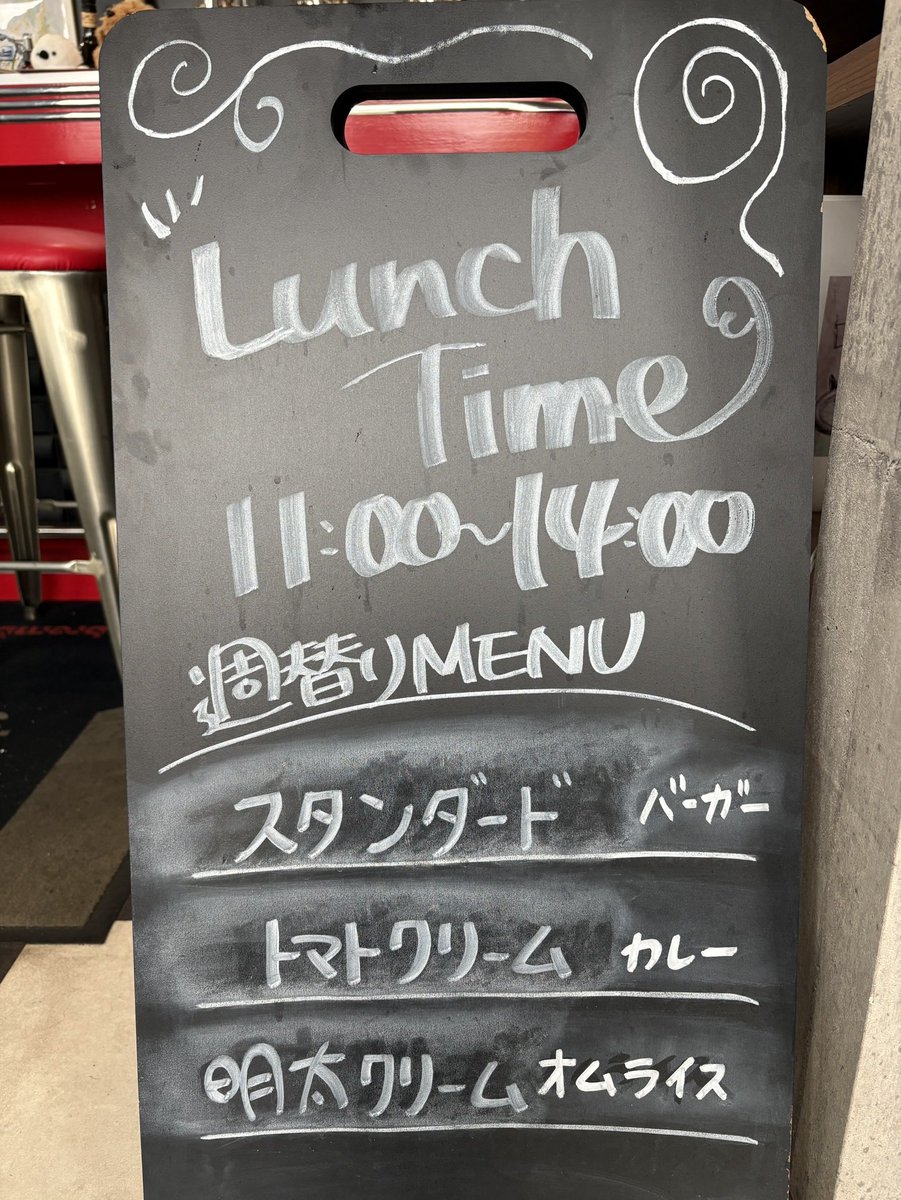 Lunch
Time
11:00~14:00
週替りMENU
スタンダード バーガー
トマトクリーム カレー
明太クリーム オムライス